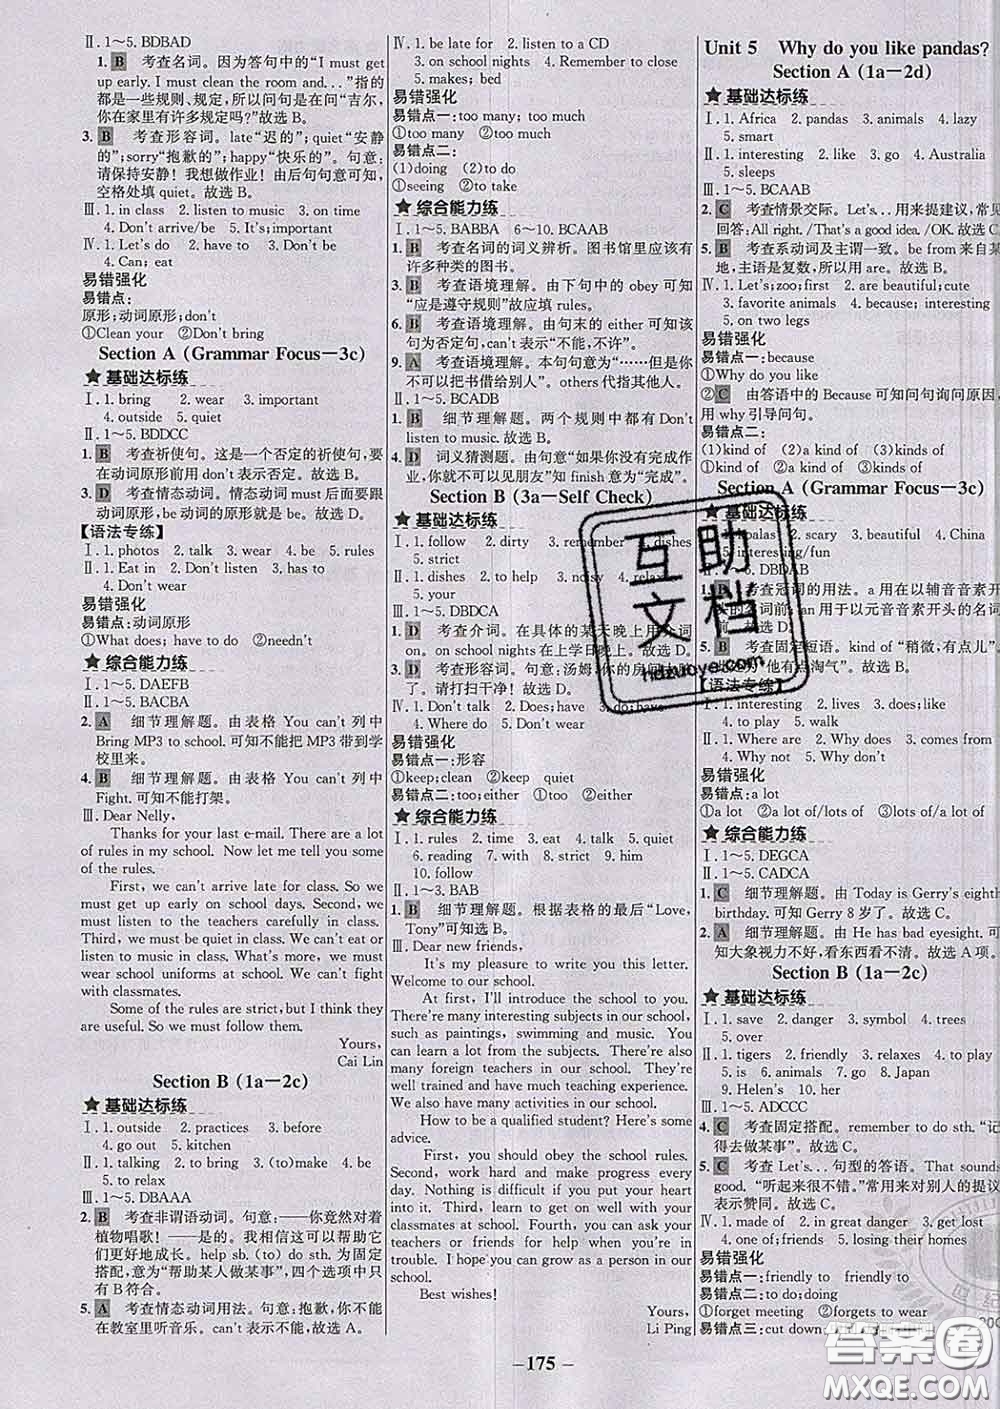 Ⅱ. 1~5. BDBAD
1. B 考查名词。因为答句中的“I must get up early. I must clean the room and...”指的都是一些规则、规定,所以问句是在问“吉尔,你在家里有许多规定吗?”故选 B。
3. B 考查形容词。late“迟的”;quiet“安静的”;sorry“抱歉的”;happy“快乐的”。句意:请保持安静!我想做作业!由后句句意可知,空格处填 quiet。故选 B。
Ⅲ. 1. in class 2. listen to music 3. on time
4. Don't arrive/be 5. It's; important
Ⅳ. 1. Let's do 2. have to 3. Don't be
4. Can; eat
易错强化
易错点:
原形;动词原形;don't
①Clean your ②Don't bring
Section A (Grammar Focus—3c)
★基础达标练
Ⅰ. 1. bring 2. wear 3. important
4. outside 5. quiet
Ⅱ. 1~5. BDDCC
1. B 考查祈使句。这是一个否定的祈使句,要在动词原形前用 don't 表示否定。故选 B。
3. D 考查情态动词。情态动词 must 后面要跟动词原形,be 动词的原形就是 be。故选 D。
【语法专练】
Ⅰ. 1. photos 2. talk 3. wear 4. be 5. rules
Ⅱ. 1. Eat in 2. Don't be 3. has to
4. Don't wear
易错强化
易错点:动词原形
①What does; have to do ②needn't
★综合能力练
Ⅰ. 1~5. DAEFB
Ⅱ. 1~5. BACBA
2. A 细节理解题。由表格 You can't 列中 Bring MP3 to school. 可知不能把 MP3 带到学校里来。
4. B 细节理解题。由表格 You can't 列中 Fight. 可知不能打架。
Ⅲ. Dear Nelly,
Thanks for your last e-mail. There are a lot of rules in my school. Now let me tell you some of the rules.
First, we can't arrive late for class. So we must get up early on school days. Second, we must listen to the teachers carefully in class. Third, we must be quiet in class. We can't eat or listen to music in class. What's more, we must wear school uniforms at school. We can't fight with classmates.
Some of the rules are strict, but I think they are useful. So we must follow them.
Yours,
Cai Lin
Section B (1a—2c)
★基础达标练
Ⅰ. 1. outside 2. practices 3. before
4. go out 5. kitchen
Ⅱ. 1. talking 2. to bring 3. (to)make 4. be
5. relaxing
Ⅲ. 1~5. DBAAA
2. B 考查非谓语动词。句意:——你竟然对着植物唱歌!——是的。我相信这可以帮助它们更好地成长。help sb. (to) do sth. 为固定搭配,意为“帮助某人做某事”,四个选项中只有 B 符合。
5. A 考查情态动词用法。句意:抱歉,你不能在教室里听音乐。can't 表示不能。故选 A。
Ⅳ. 1. be late for 2. listen to a CD
3. on school nights 4. Remember to close
5. makes; bed
易错强化
易错点一:too many; too much
①too many ②too much
易错点二:
(1)doing (2)to do
①seeing ②to take
★综合能力练
Ⅰ. 1~5. BABBA 6~10. BCAAB
1. B 考查名词的词义辨析。图书馆里应该有许多种类的图书。
3. B 考查语境理解。由下句中的 obey 可知“应是遵守规则”故应填 rules。
6. B 考查语境理解。由句末的 either 可知该句为否定句,can't 表示“不能,不许”。
9. A 考查语境理解。本句句意为“……但是你不可以把书借给别人”。others 代指其他人。
Ⅱ. 1~5. BCADB
1. B 细节理解题。两个规则中都有 Don't listen to music. 故选 B。
4. D 词义猜测题。由句意“如果你没有完成作业,你就不可以见朋友”知 finish 意为“完成”。
Section B (3a—Self Check)
★基础达标练
Ⅰ. 1. follow 2. dirty 3. remember 4. dishes
5. strict
Ⅱ. 1. dishes 2. to help 3. noisy 4. relax
5. your
Ⅲ. 1~5. DBDCA
1. D 考查介词。在具体的某天晚上用介词 on。on school nights 在上学日晚上。故选 D。
3. D 考查形容词。句意:汤姆,你的房间太脏了。请打扫干净!故选 D。
Ⅳ. 1. Don't talk 2. Does; have 3. do; have
4. Where do 5. Don't wear
易错强化
易错点一:形容
①keep; clean ②keep quiet
易错点二:too; either ①too ②either
★综合能力练
Ⅰ. 1. rules 2. time 3. eat 4. talk 5. quiet
6. reading 7. with 8. strict 9. him
10. follow
Ⅱ. 1~3. BAB
1. B 细节理解题。根据表格的最后“Love, Tony”可知选 B。
Ⅲ. Dear new friends,
It's my pleasure to write you this letter. Welcome to our school.
At first, I'll introduce the school to you. There're many interesting subjects in our school, such as paintings, swimming and music. You can learn a lot from the subjects. There're also many foreign teachers in our school. They're well trained and have much teaching experience. We also have many activities in our school.
How to be a qualified student? Here's some advice.
First, you should obey the school rules. Second, work hard and make progress every day. Nothing is difficult if you put your heart into it. Third, learn to get on well with your classmates at school. Fourth, you can ask teachers or friends for help when you're in trouble. I hope you can grow as a person in our school.
Best wishes!
Yours,
Li Ping
Unit 5 Why do you like pandas?
Section A (1a—2d)
★基础达标练
Ⅰ. 1. Africa 2. pandas 3. animals 4. lazy
5. smart
Ⅱ. 1. interesting 2. like 3. go 4. Australia
5. sleeps
Ⅲ. 1~5. BCAAB
2. C 考查情景交际。Let's... 用来提建议,常见
回答:All right. /That's a good idea. /OK. 故选 C
5. B 考查系动词及主谓一致。be from 来自某
地,主语是复数,所以用 are。故选 B。
Ⅳ. 1. Let's; zoo; first 2. are beautiful; cute
3. favorite animals 4. because; interesting
5. on two legs
易错强化
易错点一:because
①Why do you like
②C 由答语中的 Because 可知问句询问原因,
用 why 引导问句。
易错点二:
(1)kind of (2)a kind of (3)kinds of
①kind of ②a kind of ③kinds of
Section A (Grammar Focus—3c)
★基础达标练
Ⅰ. 1. koalas 2. scary 3. beautiful 4. China
5. interesting/fun
Ⅱ. 1~5. DBDAB
1. D 考查冠词的用法。a 用在以辅音音素开
头的名词前;an 用于以元音音素开头的名词
前。故选 D。
考查固定短语。kind of “稍微,有点儿”。
此处意为“他有点淘气”。故选 B。
【语法专练】
Ⅰ. 1. interesting 2. lives 3. does 4. like
4. to play 5. walk
Ⅱ. 1. Where are 2. Why does 3. comes from
4. Why not 5. Why don't
易错强化
易错点:a lot
①a lot ②a lot of/lots of ③lots of/a lot of
★综合能力练
Ⅰ. 1~5. DEGCA
Ⅱ. 1~5. CADCA
1. C 细节理解题。由 Today is Gerry's eighth
birthday. 可知 Gerry 8 岁了。故选 C。
2. A 细节理解题。由 He has bad eyesight. 可
知大象视力不好,看东西看不清。故选 A 项。
Section B (1a—2c)
★基础达标练
Ⅰ. 1. save 2. danger 3. symbol 4. trees
5. over
Ⅱ. 1. tigers 2. friendly 3. relaxes 4. to play
5. is 6. are 7. is 8. go 8. Japan
9. Helen's 10. her
Ⅲ. 1~5. ADCCC
4. C 考查固定搭配。remember to do sth. “记
得去做某事”。故选 C。
5. C 考查 Let's... 句型的答语。That sounds
good. “听起来很不错。”常用来对别人的提议
表示赞同。故选 C。
Ⅳ. 1. made of 2. in great danger 3. get lost
4. one of; friends 5. losing their homes
易错强化
易错点一:friendly to friendly to
易错点二:to do; doing
①forget meeting ②forgets to wear
易错点三:cut down
—175—
互助文档
hdzuoye.com
答案圈
MXQE.COM